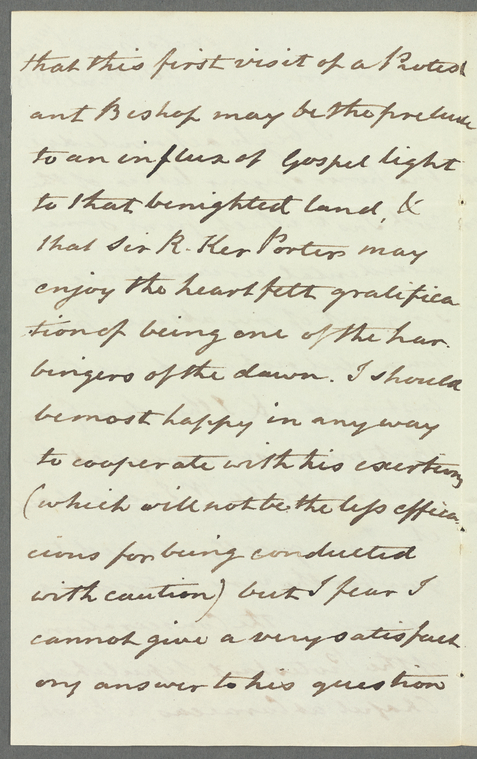 that this first visit of a Protest
ant Bishop may be the prelude
to an influx of Gospel light
to that benighted land, &
that Sir R. Ker Porter may
enjoy the heartfelt gratifica
tion of being one of the har
bingers of the dawn. I should
be most happy in any way
to cooperate with his exertions
(which will not be the less effica
cious for being conducted
with caution) but I fear I
cannot give a very satisfact
ory answer to his question